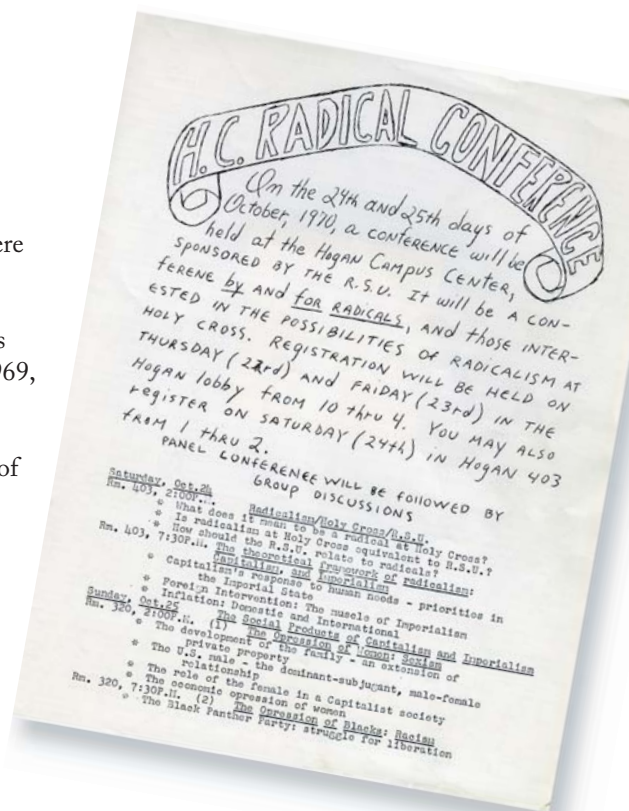 ere
s
969,
of
H.C. RADICAL CONFERENCE
On the 24th and 25th days of
October, 1970, a CONFERENCE will be
held at the Hogan Campus Center,
SPONSORED BY THE R.S.U. It will be a CON-
FERENE by AND for RADICALS, AND those INTER-
ESTED IN THE POSSIBILITIES of RADICALISM AT
HOLY CROSS. REGISTRATION WILL BE HELD ON
THURSDAY (22rd) AND FRIDAY (23rd) IN THE
HOGAN lobby from 10 thru 4. YOU MAY ALSO
register ON SATURDAY (24th) in Hogan 403
from 1 thru 2.
PANEL CONFERENCE WILL BE FOLLOWED BY
GROUP DISCUSSIONS
Saturday, Oct.24
Rm. 403, 2:00P.M. Radicalism/Holy Cross/R.S.U.
* What does it mean to be a radical at Holy Cross?
* Is radicalism at Holy Cross equivalent to R.S.U.?
* How should the R.S.U. relate to radicals?
Rm. 403, 7:30P.M. The theoretical framework of radicalism:
Capitalism, and Imperialism
* Capitalism's response to human needs - priorities in
the Imperial State
* Foreign Intervention: The muscle of Imperialism
* Inflation: Domestic and International
Sunday, Oct.25 The Social Products of Capitalism and Imperialism
Rm. 320, 2:00P.M. (1) The Opression of Women: Sexism
* The development of the family - an extension of
private property
* The U.S. male - the dominant-subjugant, male-female
relationship
* The role of the female in a Capitalist society
* The economic opression of women
Rm. 320, 7:30P.M. (2) The Opression of Blacks: Racism
* The Black Panther Party: struggle for liberation